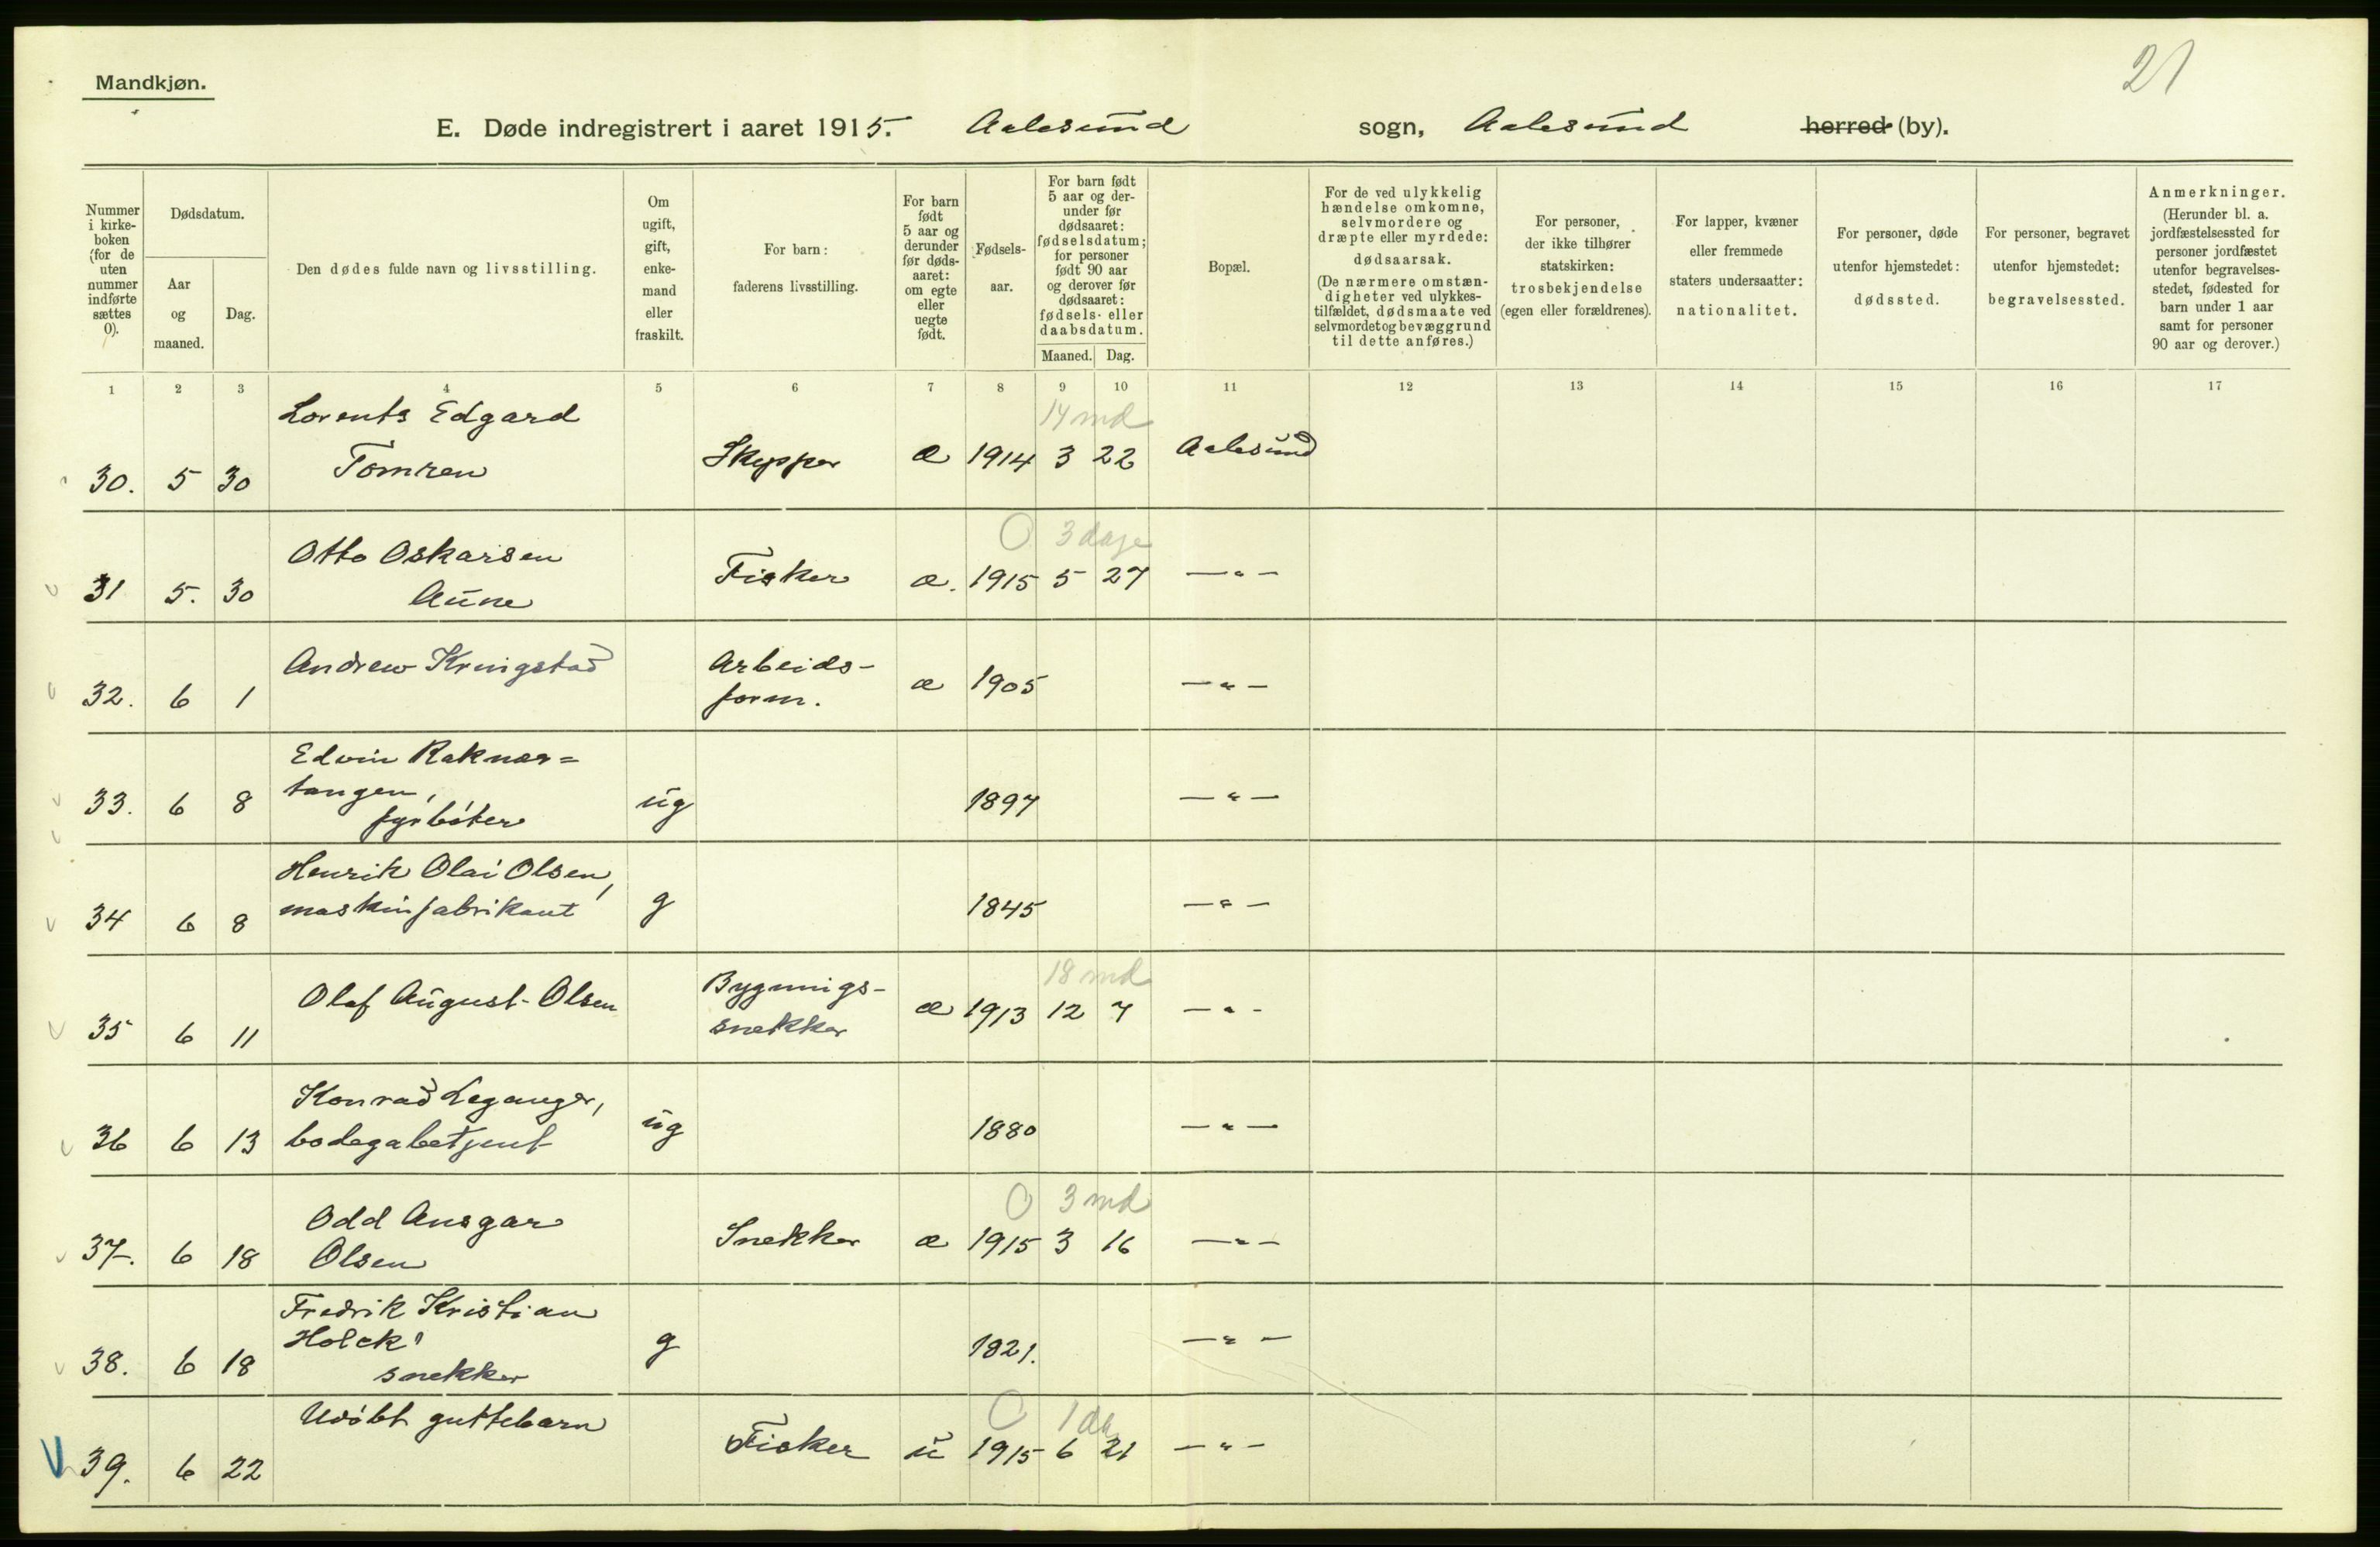 21
Mandkjøn.
E. Døde indregistrert i aaret 1915. Aalesund sogn, Aalesund herred (by).
Nummer i kirkeboken (for de uten nummer indførte sættes 0).
Dødsdatum.
Aar og maaned.
Dag.
Den dødes fulde navn og livsstilling.
Om ugift, gift, enkemand eller fraskilt.
For barn: faderens livsstilling.
For barn født 5 aar og derunder før dødsaaret: om egte eller uegte født.
Fødselsaar.
For barn født 5 aar og derunder før dødsaaret: fødselsdatum; for personer født 90 aar og derover før dødsaaret: fødsels- eller daabsdatum.
Maaned. Dag.
Bopæl.
For de ved ulykkelig hændelse omkomne, selvmordere og dræpte eller myrdede: dødsaarsak. (De nærmere omstændigheter ved ulykkestilfældet, dødsmaate ved selvmordet og bevæggrund til dette anføres.)
For personer, der ikke tilhører statskirken: trosbekjendelse (egen eller forældrenes).
For lapper, kvæner eller fremmede staters undersaatter: nationalitet.
For personer, døde utenfor hjemstedet: dødssted.
For personer, begravet utenfor hjemstedet: begravelsessted.
Anmerkninger. (Herunder bl. a. jordfæstelsessted for personer jordfæstet utenfor begravelsesstedet, fødested for barn under 1 aar samt for personer 90 aar og derover.)
1 2 3 4 5 6 7 8 9 10 11 12 13 14 15 16 17
Lorents Edgard 14 md
30. 5 30 Tomren Skypper æ 1914 3 22 Aalesund
Otto Oskarsen 0 3 dage
31 5. 30 Aune Fisker æ. 1915 5 27 — " —
Andrew Kringstad Arbeids-
32. 6 1 form. æ 1905 — " —
Edvin Raknes=
33. 6 8 tangen, ug 1897 — " —
fyrbøter
Henrik Olai Olsen,
34 6 8 maskinfabrikant g 1845 — " —
Bygnings- 18 md
35 6 11 Olaf August Olsen snekker æ 1913 12 7 — " —
Konrad Leganger,
36 6 13 bodegabetjent ug 1880 — " —
Odd Ansgar 0 3 md
37. 6 18 Olsen Snekker æ 1915 3 16 — " —
Fredrik Kristian
Holck,
38. 6 18 snekker g 1821. — " —
Udøbt guttebarn 0 1 da
39. 6 22 Fisker u 1915 6 21 — " —